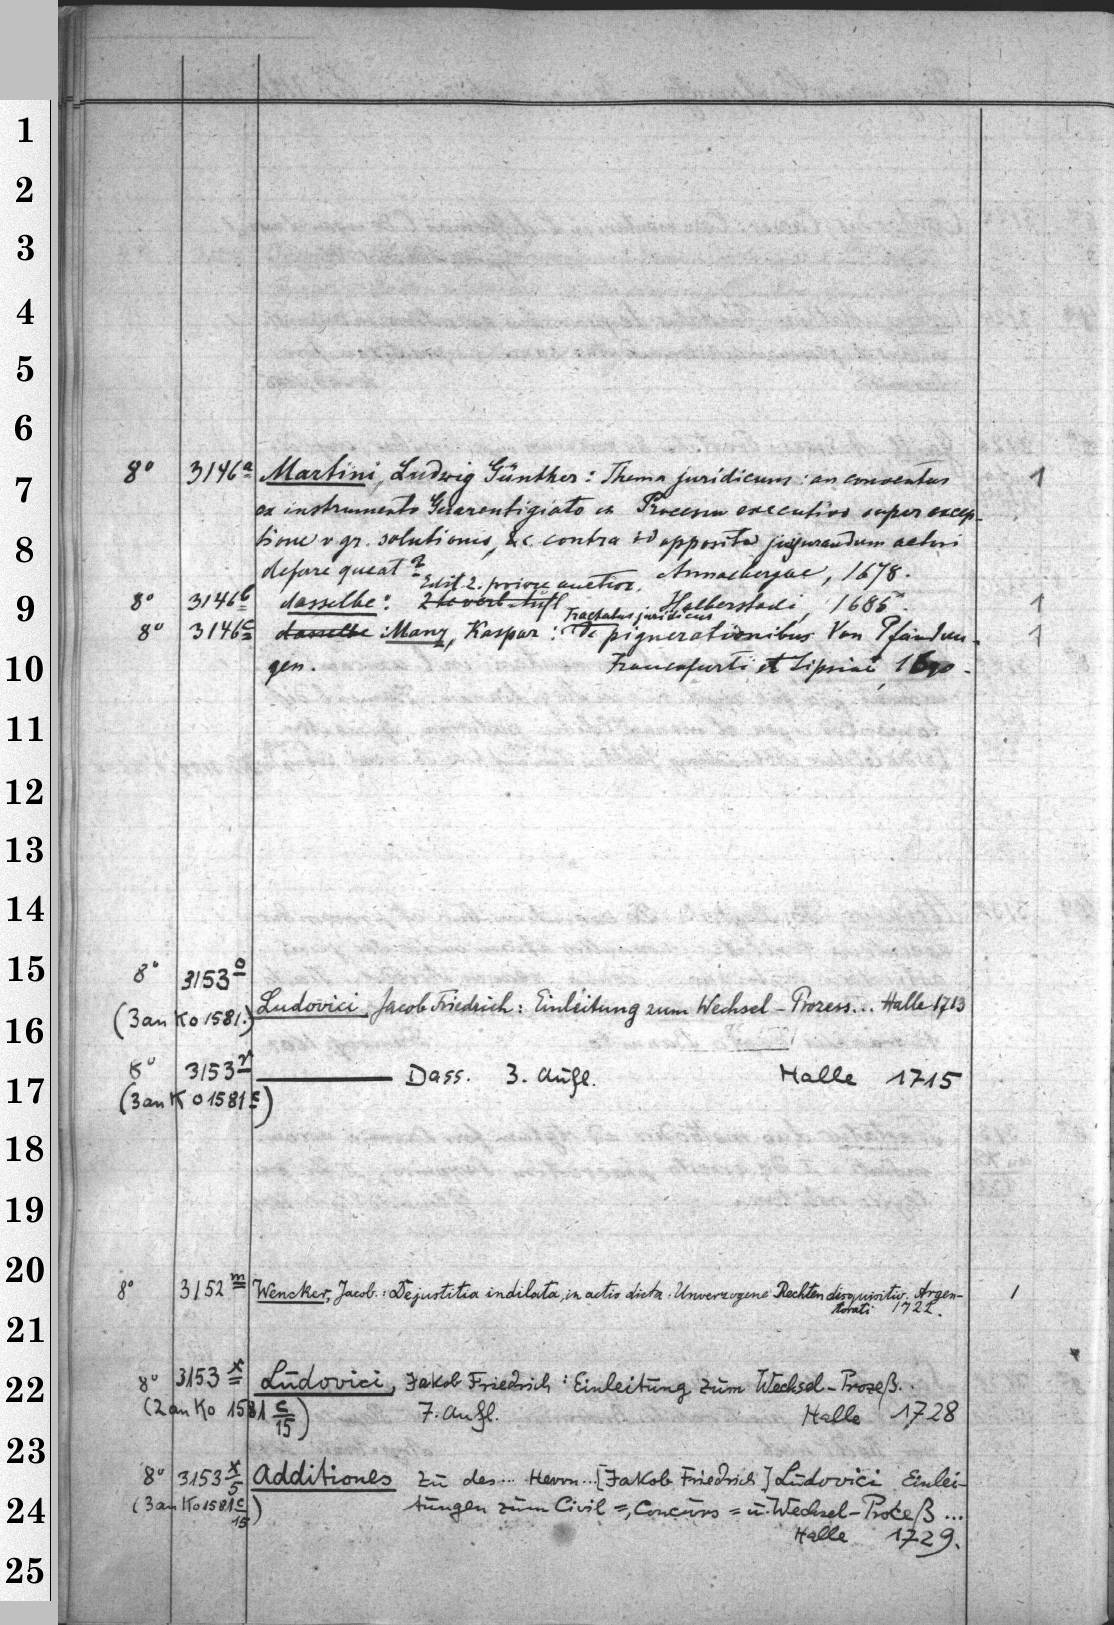 1
2
3
4
5
6
8° 3146a Martini, Ludwig Günther: Thema juridicum: an conventus 1
7
ex instrumento Guarentigiato in Processu executivo super excep-
8
tione v gr. solutionis, &c. contra id opposita jusjurandum actori
deferre queat? Annaebergae, 1678.
Edit. 2. priore auctior.
9
8° 3146b dasselbe: 2te verb. Aufl Halberstadi, 1686. 1
Tractatus juridicus
8° 3146c dasselbe: Manz, Kaspar: De pignerationibus Von Pfändun- 1
10
gen. Francofurti et Lipsiae, 1690.
11
12
13
14
15
8° 3153o
Ludovici, Jacob Friedrich: Einleitung zum Wechsel-Prozess... Halle 1713
16
(3 an Ko 1581.)
8° 3153r Dass. 3. Aufl. Halle 1715
17
(3 an Ko 1581c)
18
19
20
8° 3152m Wencker, Jacob: De justitia indilata, in actis dicta: Unverzogene Rechten disquisitio. Argen- 1
torati 1722.
21
8° 3153x Ludovici, Jakob Friedrich: Einleitung zum Wechsel-Prozeß..
22
(2 an Ko 1581 c/15) 7. Aufl. Halle 1728
23
8° 3153 x/5 Additiones zu des... Herrn...[Jakob Friedrich] Ludovici Einlei-
24
(3 an Ko 1581c/15) tungen zum Civil=, Concurs= u. Wechsel-Prozeß ...
Halle 1729.
25